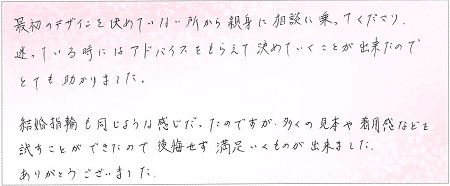 最初のデザインを決めていない所から親身に相談に乗ってくださり、
迷っている時にはアドバイスをもらえて決めていくことが出来たので
とても助かりました。
結婚指輪も同じような感じだったのですが、多くの見本や着用感などを
試すことができたので後悔せず満足いくものが出来ました。
ありがとうございました。